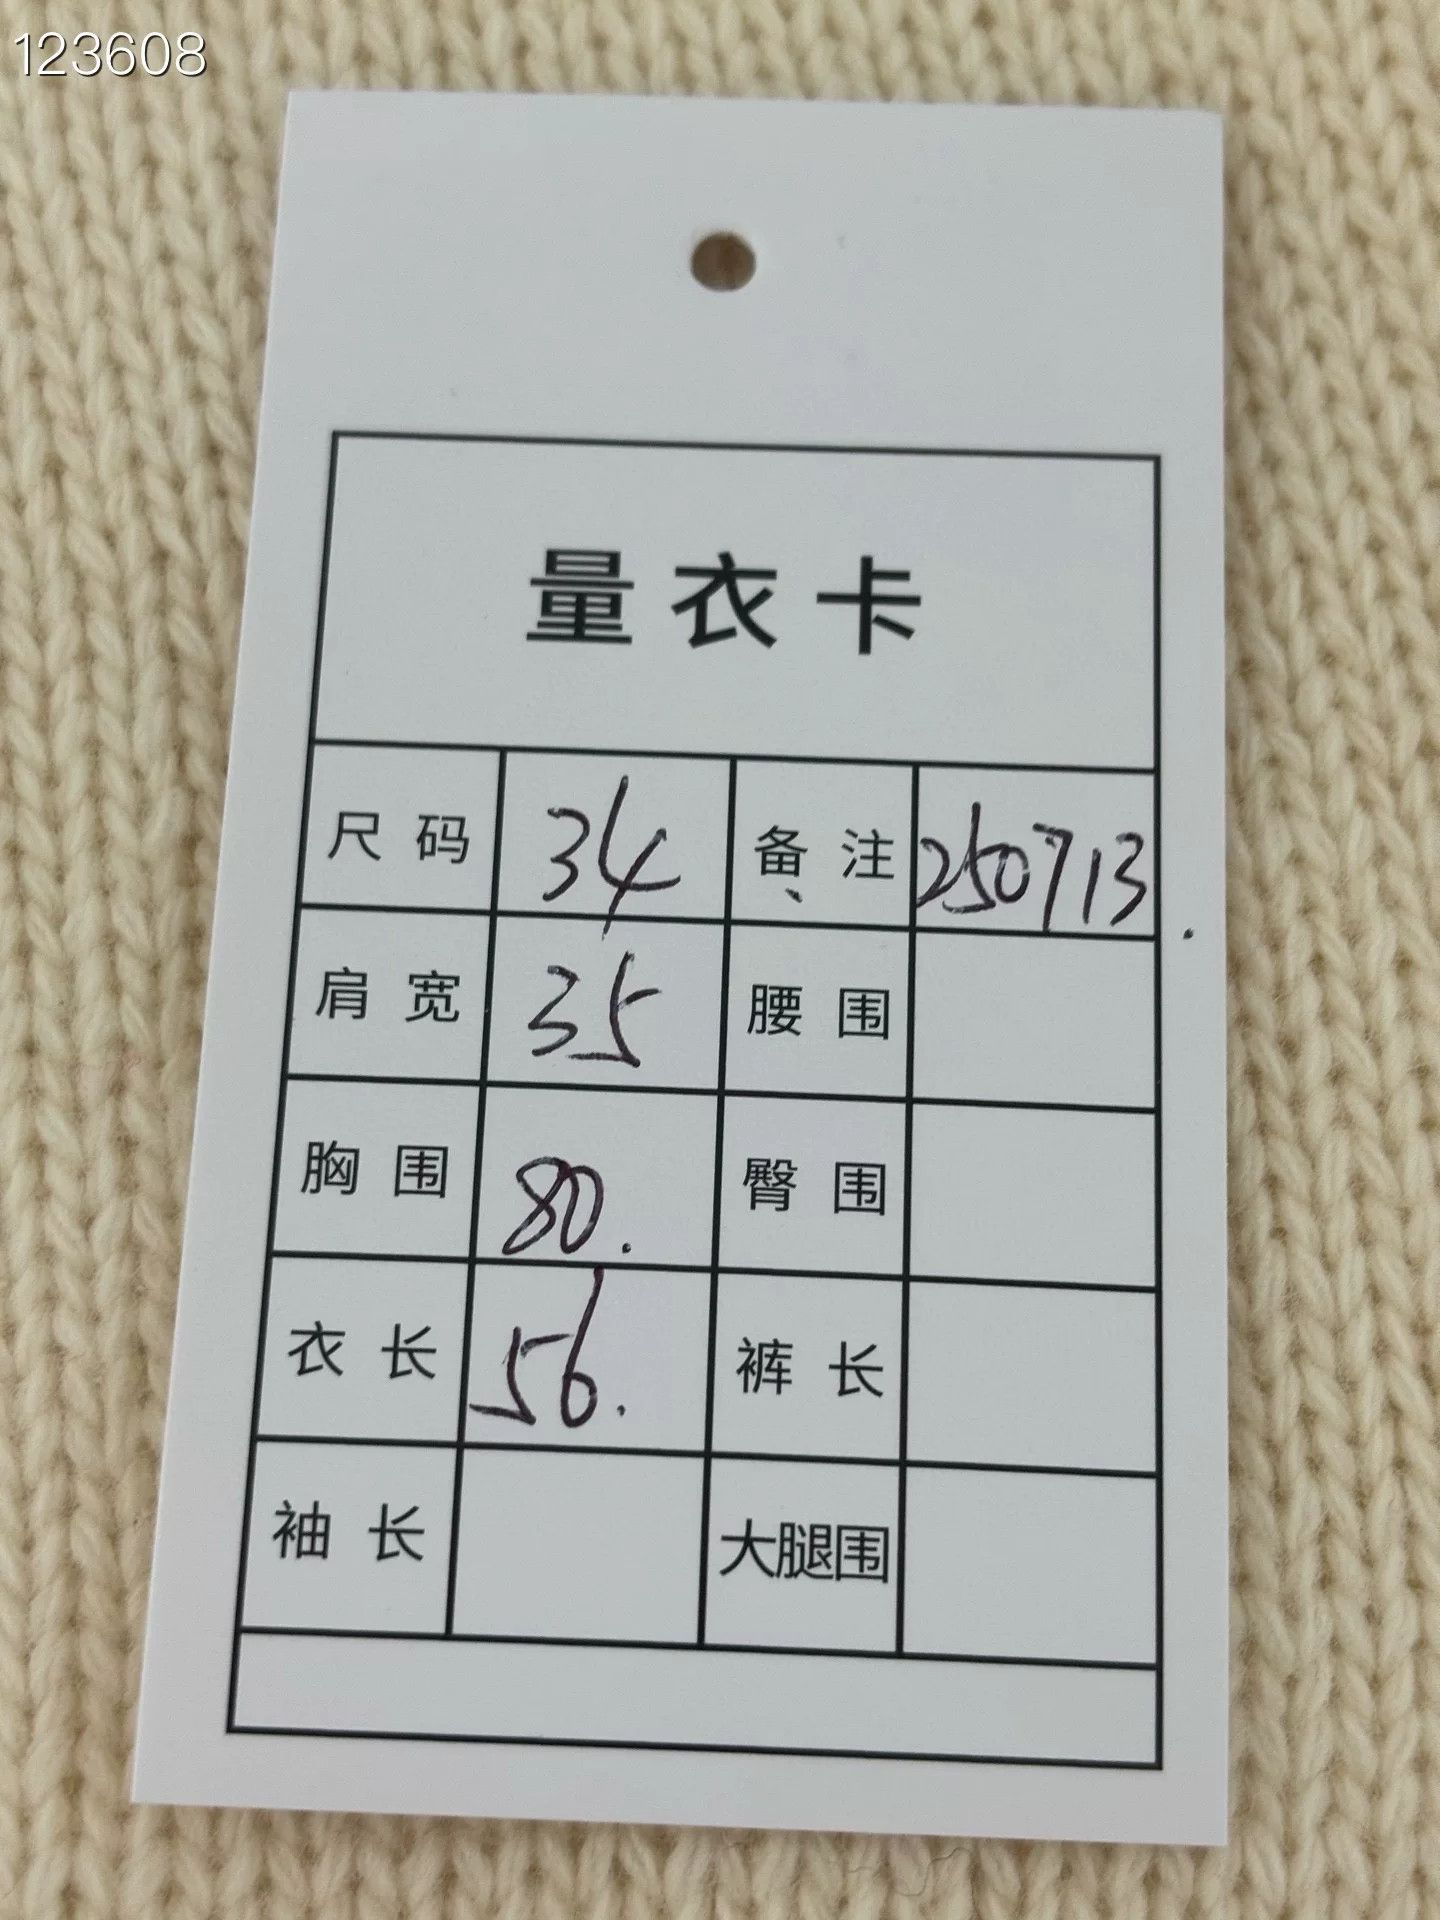 123608
量衣卡
尺码 34 备注 250713.
肩宽 35 腰围
胸围 80. 臀围
衣长 56. 裤长
袖长 大腿围